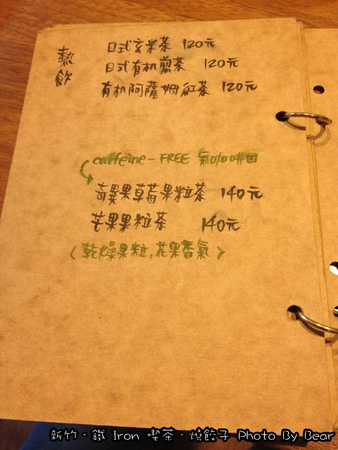 熱飲
日式玄米茶 120元
日式有机煎茶 120元
有机阿薩姆紅茶 120元
caffeine-FREE 無咖啡因
奇異果草莓果粒茶 140元
芒果果粒茶 140元
(乾燥果粒,花果香氣)
新竹・鐵 Iron 喫茶・燒餃子 Photo By Bear